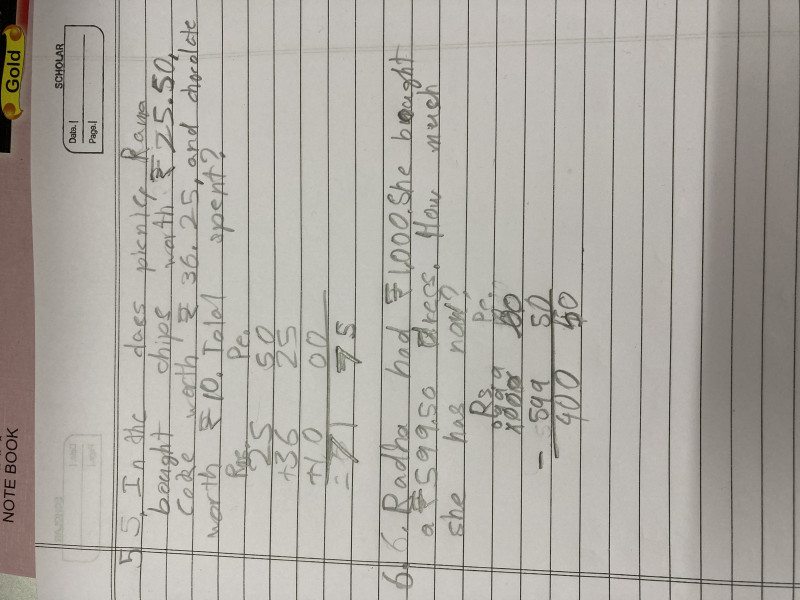 NOTE BOOK
Gold
SCHOLAR
Date.
Page.
5 5. In the class picnic, Rama
bought chips worth ₹ 25.50,
Cake worth ₹ 36.25, and chocolate
worth ₹ 10. Total spent?
Rs. Pe.
25 50
+36 25
+10 00
= 71 75
6. 6. Radha had ₹ 1,000. She bought
a ₹ 599.50 dress. How much
she has now?
Rs Pe.
0999
1000 00
- 599 50
400 50